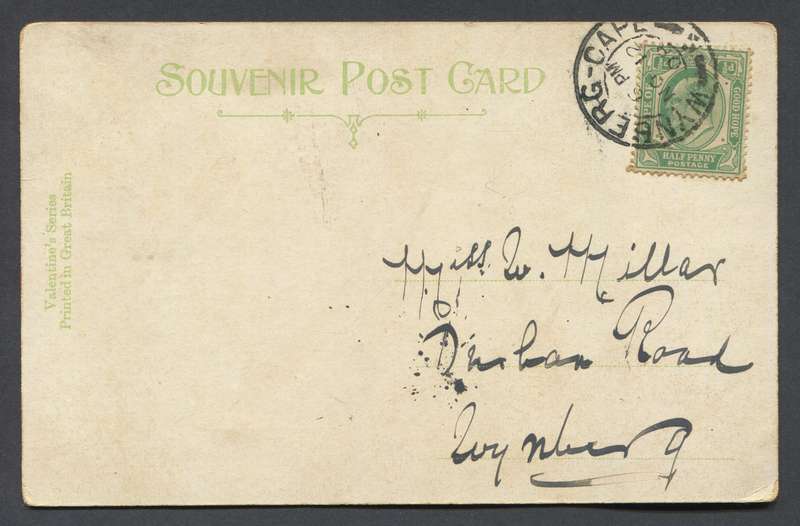 SOUVENIR POST CARD
WYNBERG-CAPE
PM
GOOD HOPE
HALF PENNY
POSTAGE
Valentine's Series
Printed in Great Britain
Miss. W. Millar
Durban Road
Wynberg